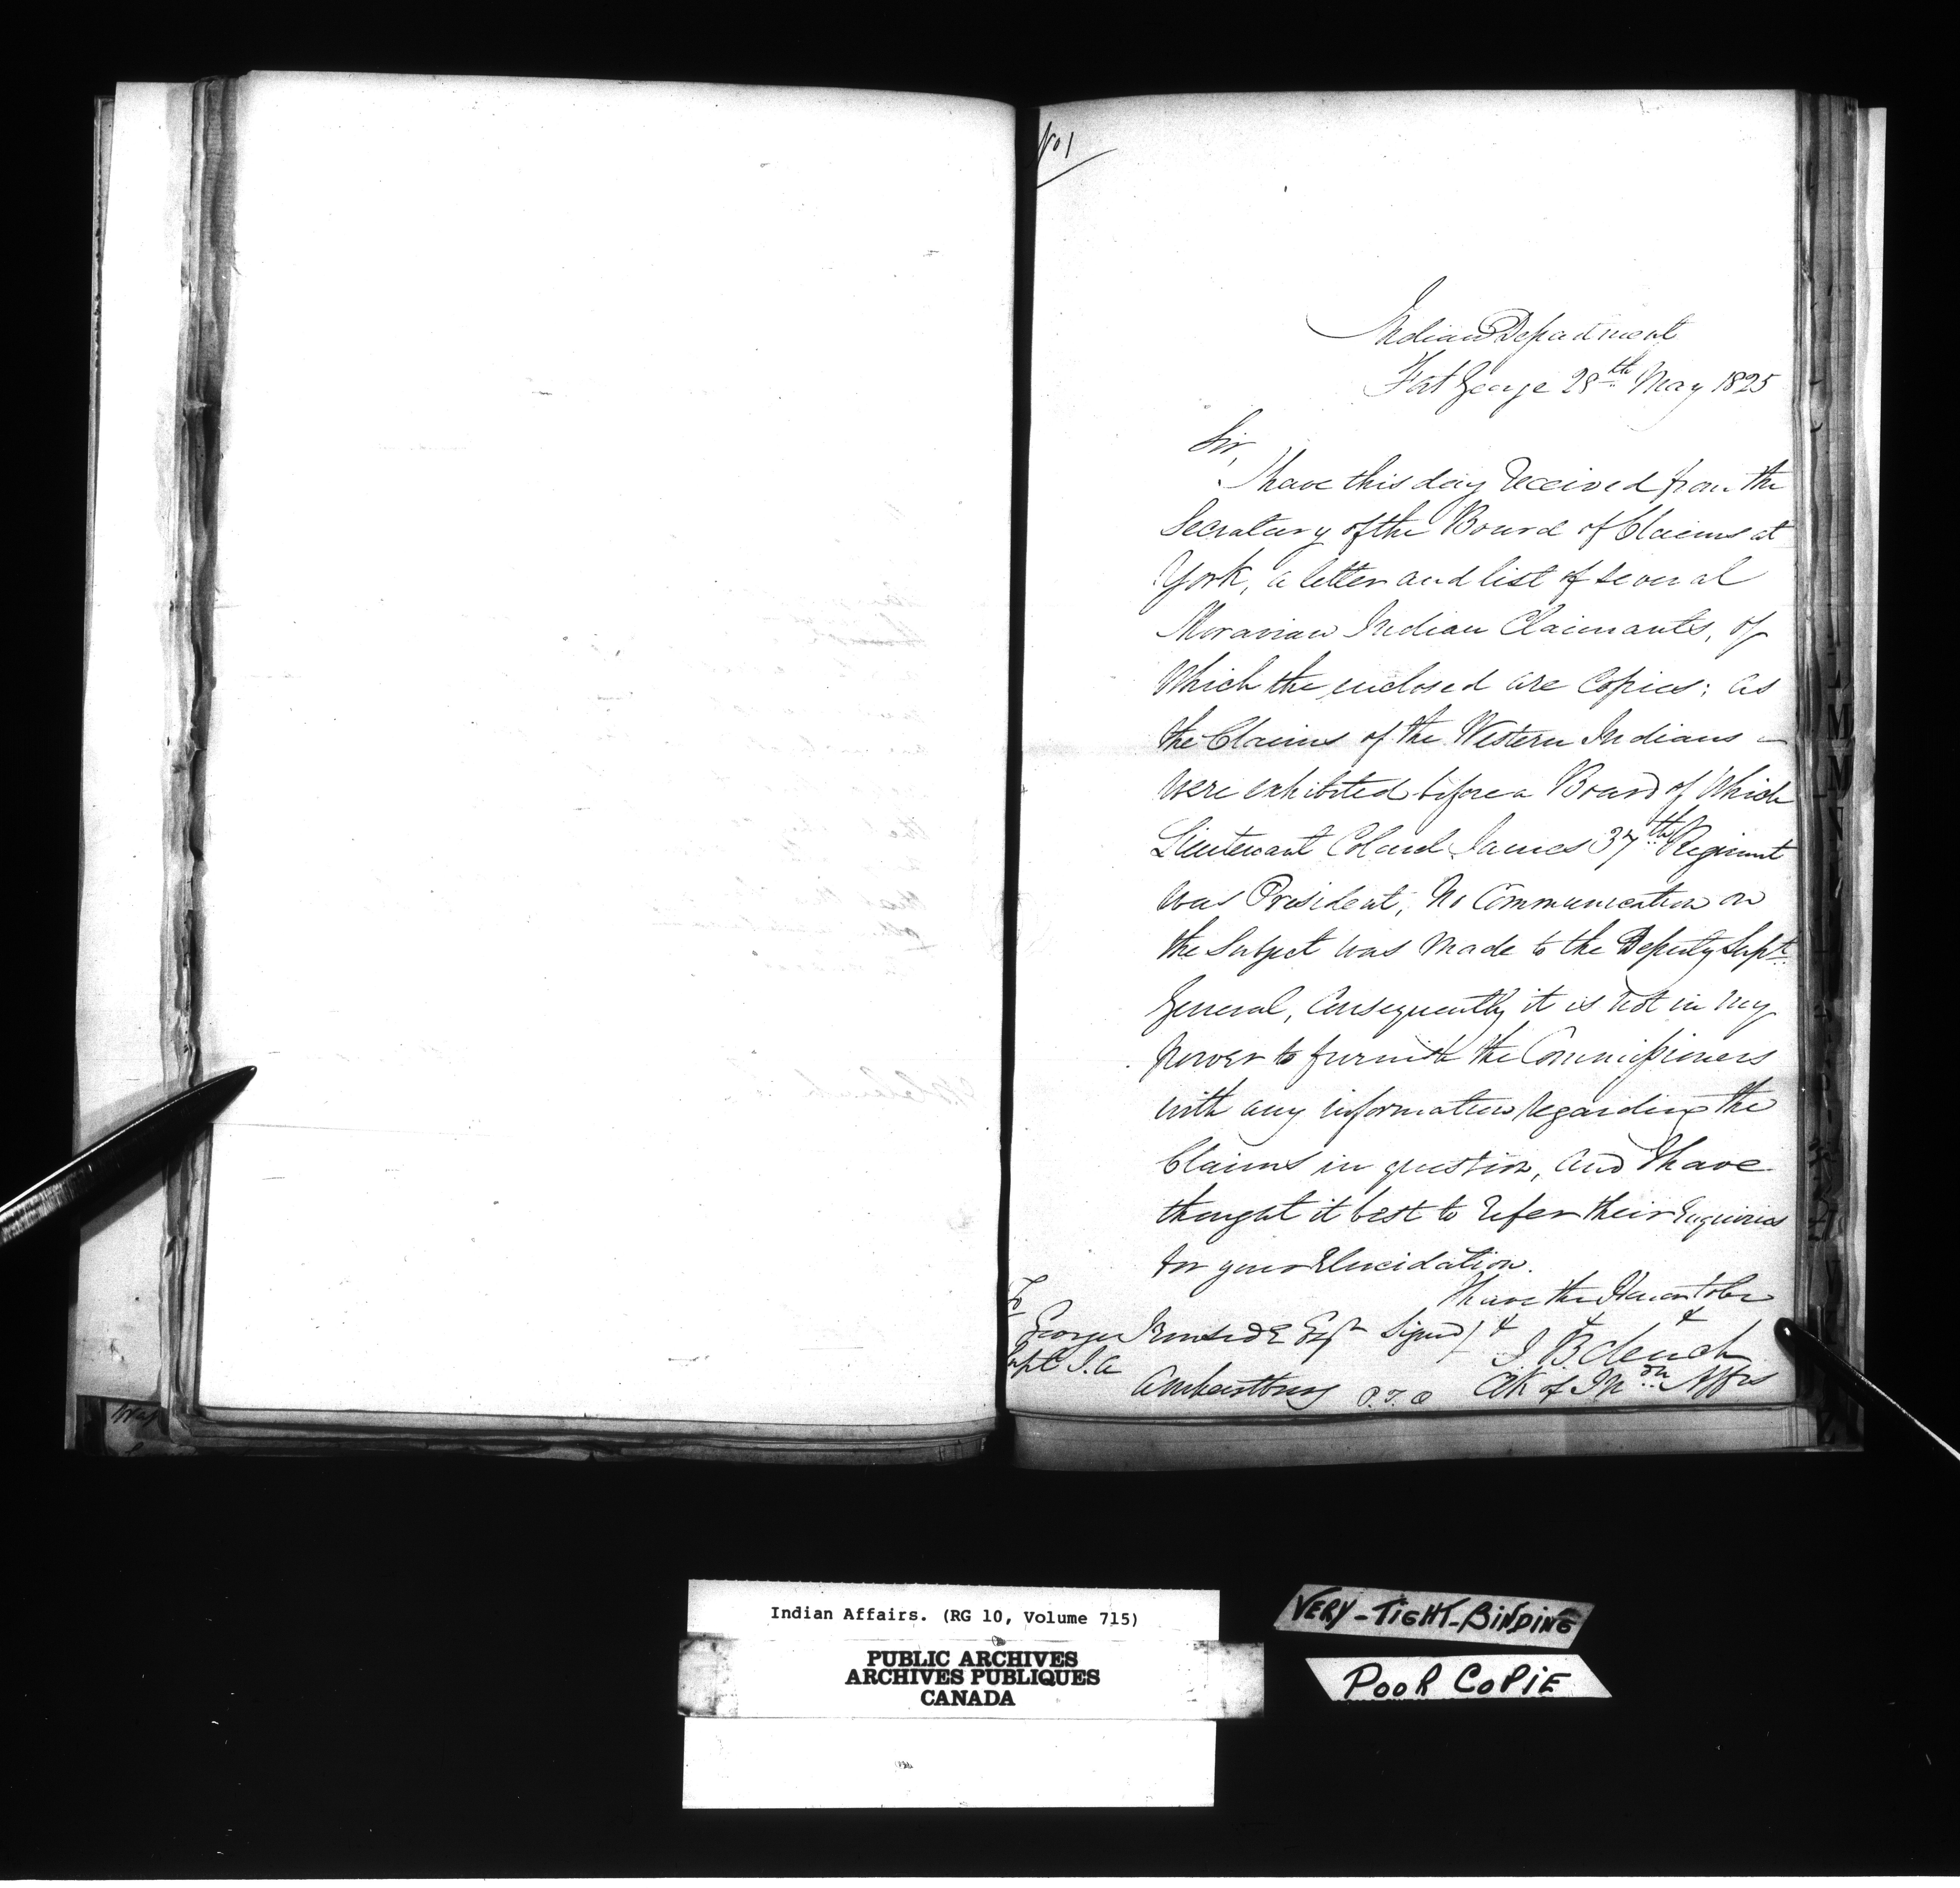 No 1
Indian Department
Fort George 28th May 1825
Sir,
I have this day received from the
Secretary of the Board of Claims at
York, a letter and list of several
Moravian Indian Claimants, of
Which the enclosed are Copies; as
the Claims of the Western Indians –
were exhibited before a Board of Which
Lieutenant Colonel James 37th Regiment
was President, No Communication on
the Subject was Made to the Deputy Supt
General, Consequently it is not in my
power to furnish the Commissioners
with any information regarding the
Claims in question, and I have
thought it best to refer their Enquiries
for your Elucidation.
I have the Honor to be
&
&
&
To
George Ironside Esqr
Signed)
J. B. Clench
Supt I. A
Amherstburg
P. T. O
Clk of Indn Affrs
Indian Affairs. (RG 10, Volume 715)
PUBLIC ARCHIVES
ARCHIVES PUBLIQUES
CANADA
VERY-TIGHT-BINDING
POOR COPIE